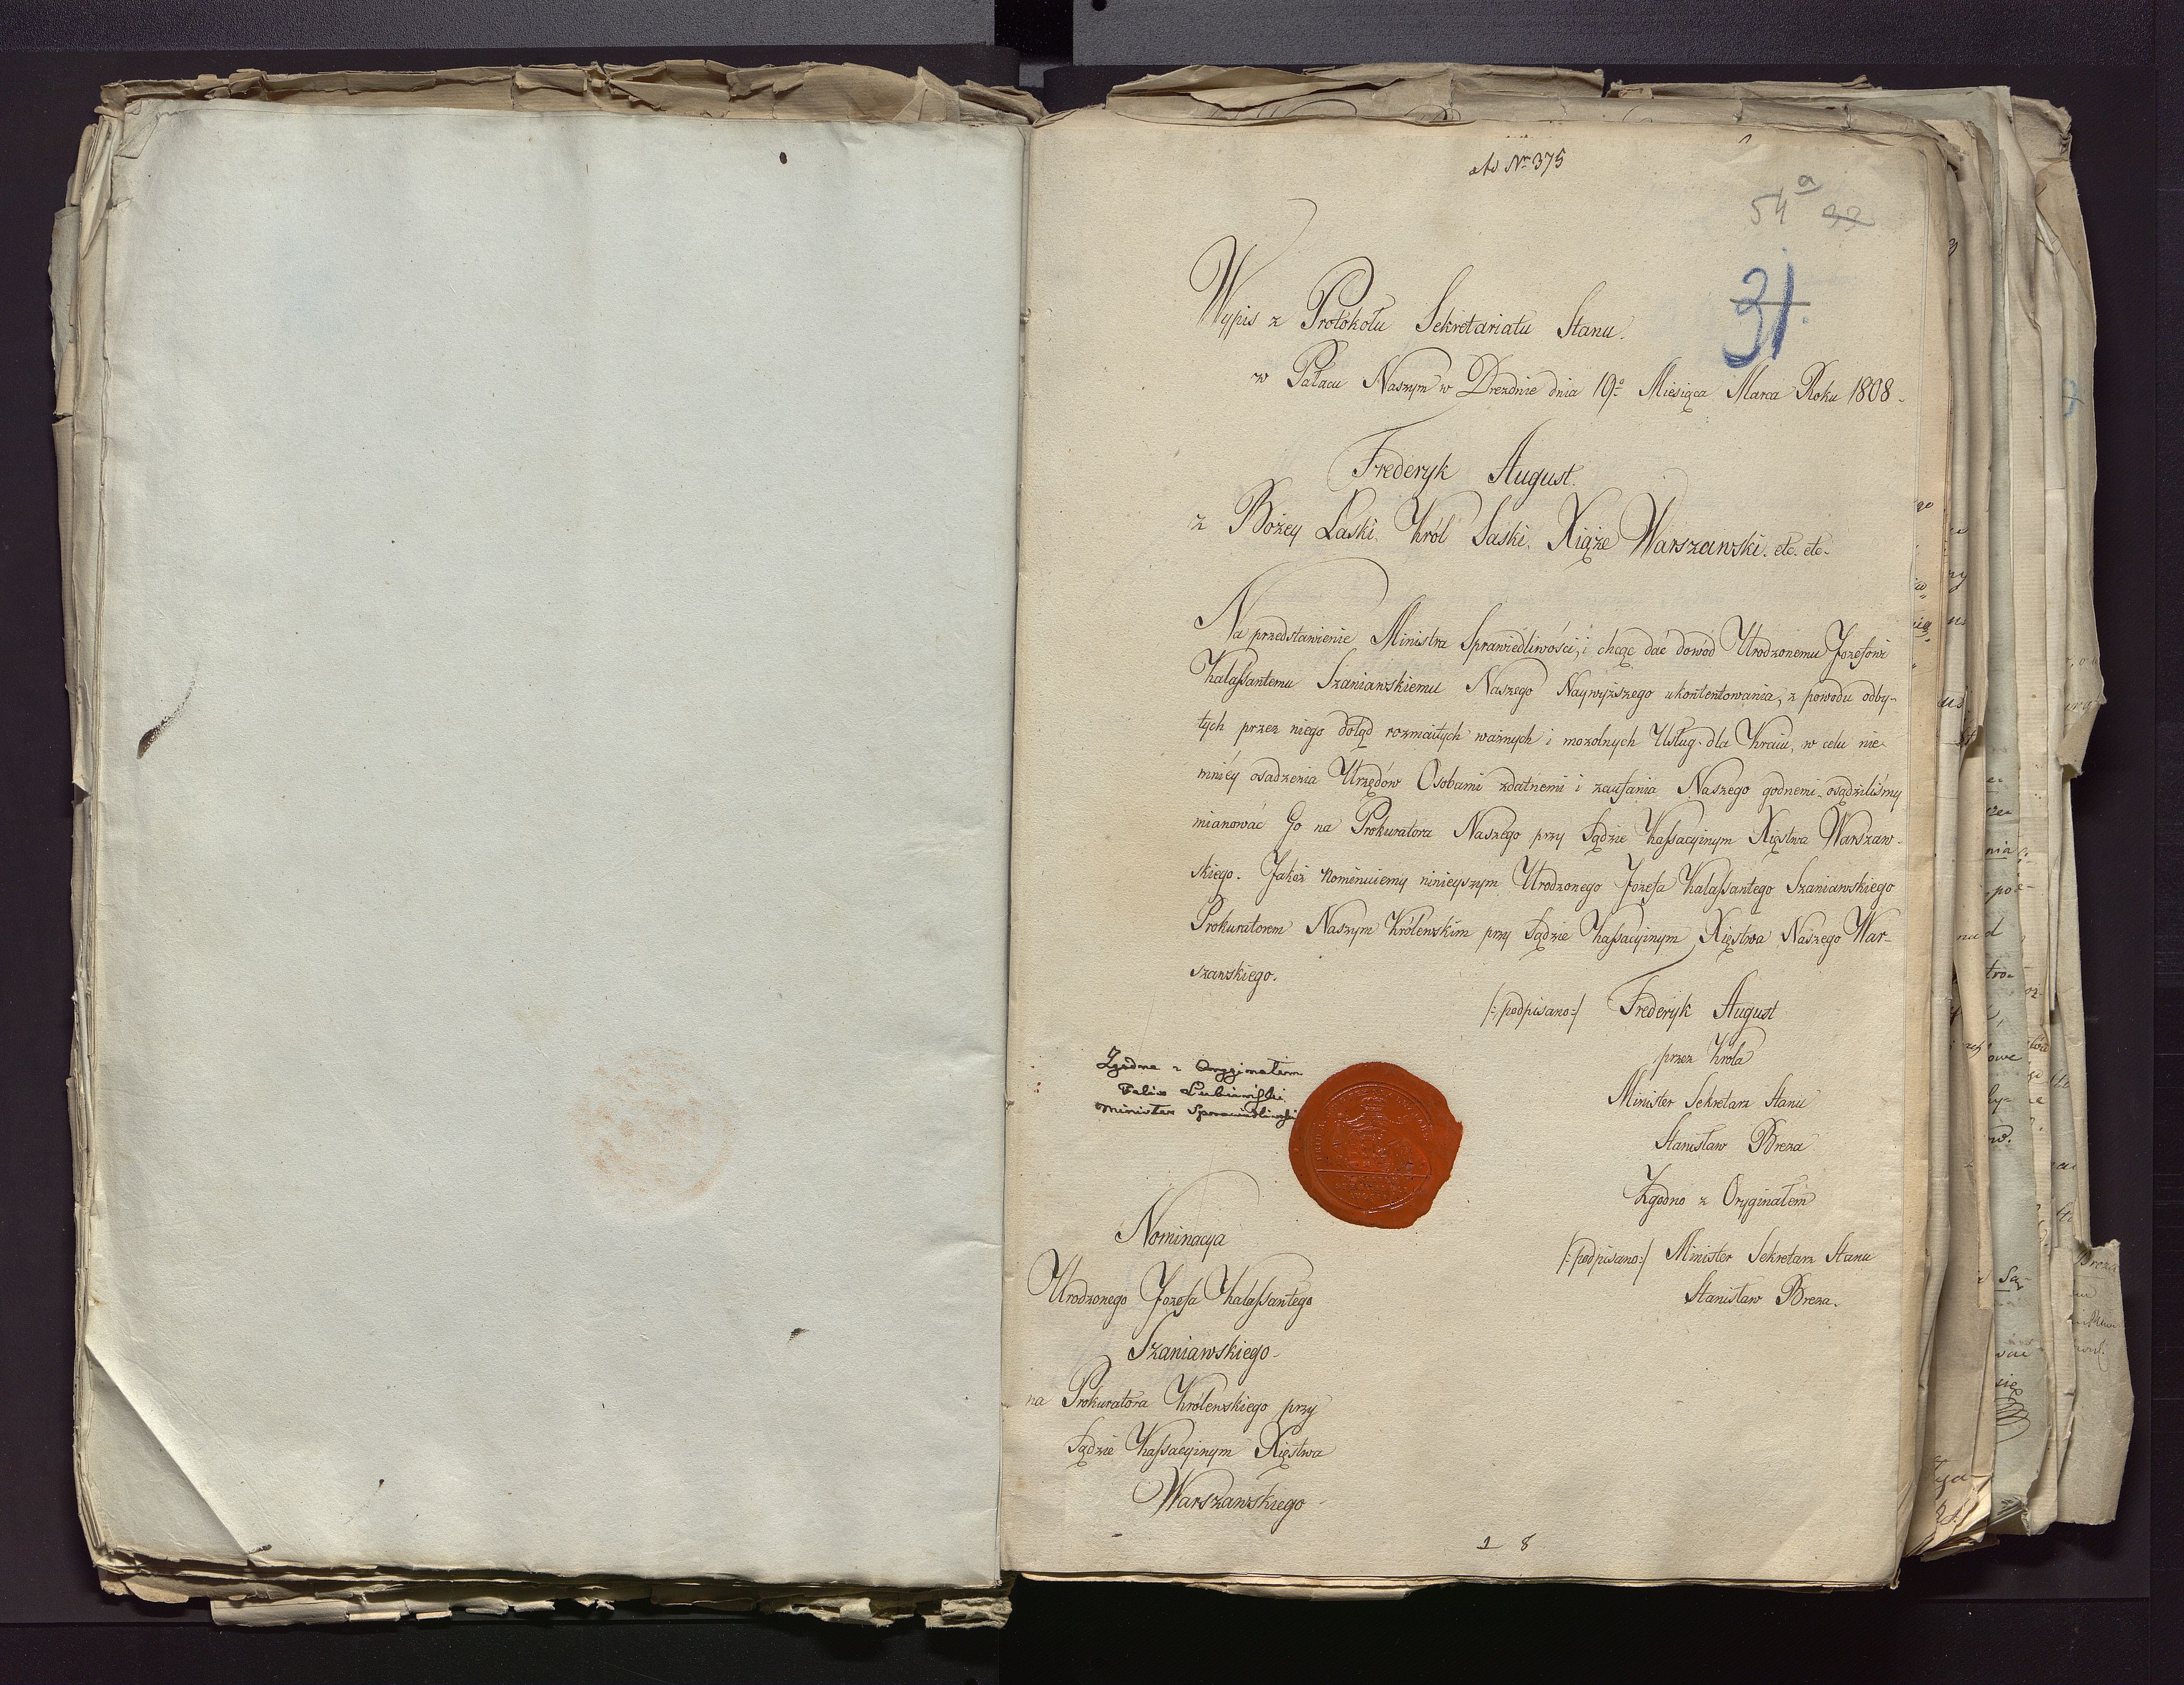 Ad Nr 375
54 a 32
31.
Wypis z Protokołu Sekretariatu Stanu.
w Pałacu Naszym w Dreznie dnia 19o Miesiąca Marca Roku 1808.
Frederyk August.
z Bożey Łaski. Król Saski, Xiąże Warszawski. etc. etc.
Na przedstawienie Ministra Sprawiedliwości, i chcąc dać dowód Urodzonemu Jozefowi
Kalassantemu Szaniawskiemu Naszego Naywyższego ukontentowania, z powodu odby-
tych przez niego dotąd rozmaitych ważnych i mozolnych Usług dla Kraiu, w celu nie-
mnièy osadzenia Urzędów Osobami zdatnemi i zaufania Naszego godnemi osądziliśmy
mianować Go na Prokuratora Naszego przy Sądzie Kassacyinym Xięstwa Warszaw-
skiego. Jakoż nominuiemy ninieyszym Urodzonego Jozefa Kalassantego Szaniawskiego
Prokuratorem Naszym Królewskim przy Sądzie Kassacyinym Xięstwa Naszego War-
szawskiego.
/: podpisano :/ Frederyk August
przez Króla
Minister Sekretarz Stanu
Stanisław Breza
Zgodno z Oryginałem
/: podpisano :/ Minister Sekretarz Stanu
Stanisław Breza.
Zgodne z Oryginałem
Felix Lubieński
Minister Sprawiedliwości
Nominacya
Urodzonego Jozefa Kalassantego
Szaniawskiego
na Prokuratora Królewskiego przy
Sądzie Kassacyinym Xięstwa
Warszawskiego
1 8